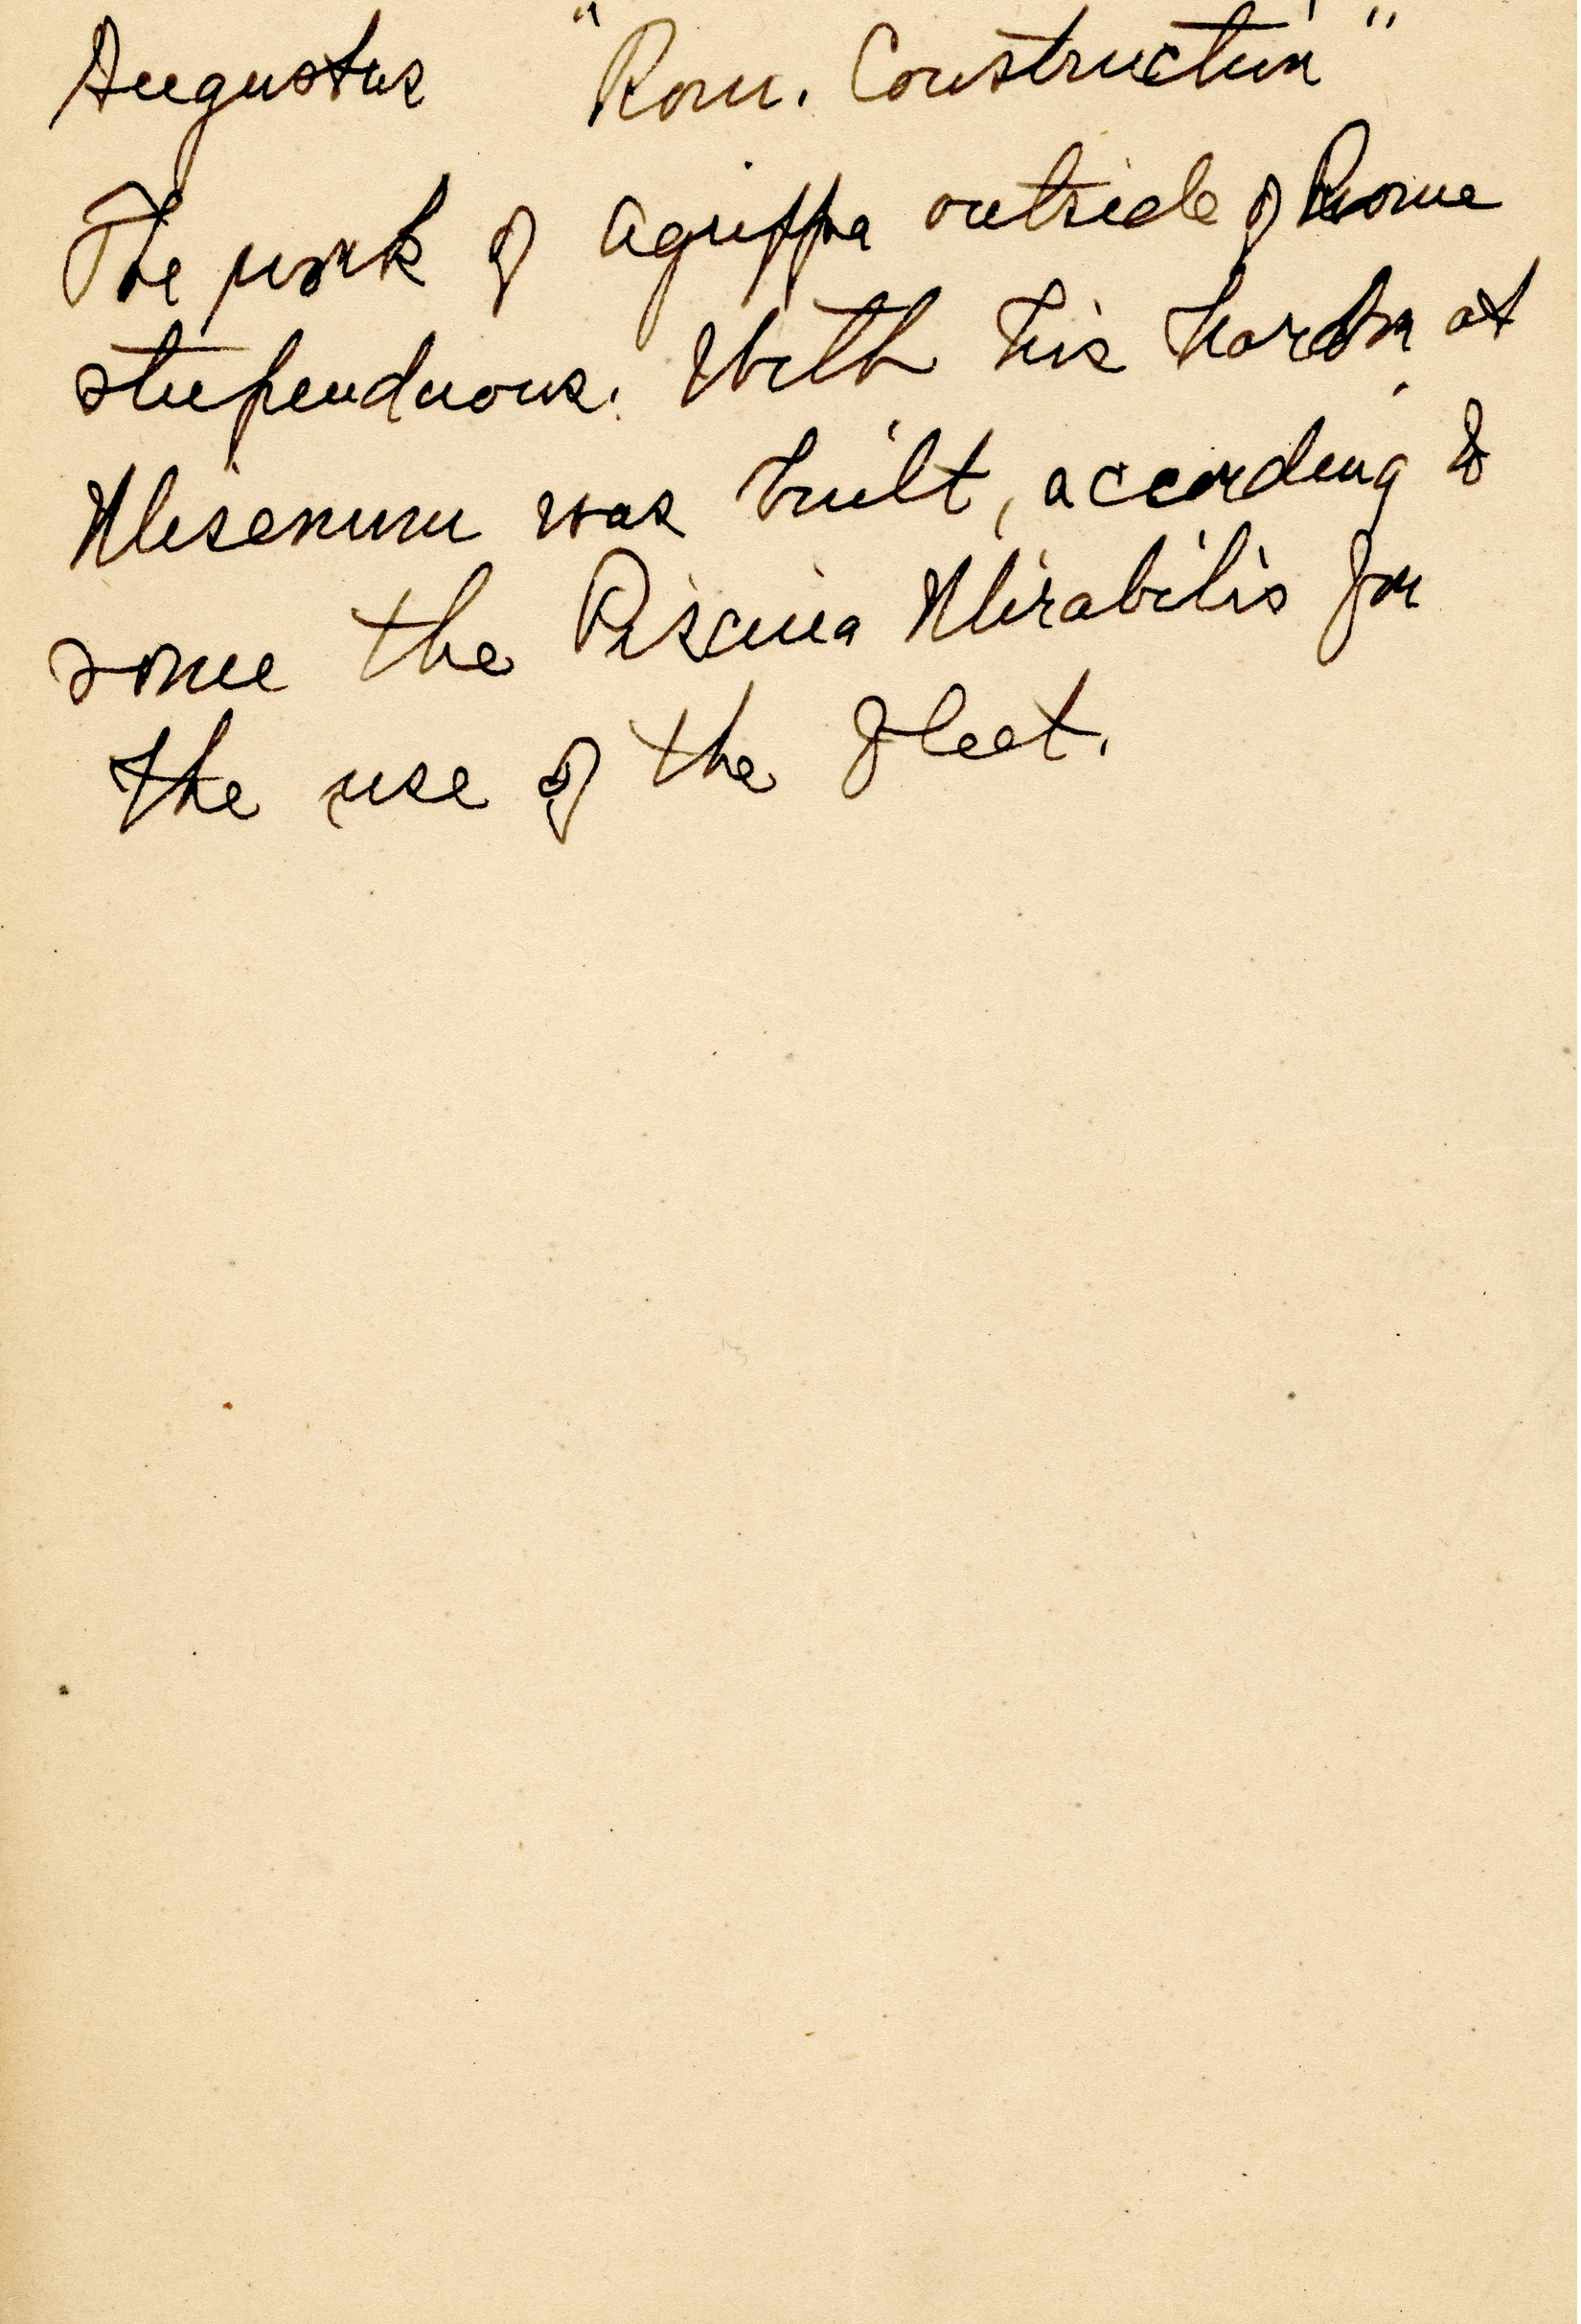 Augustus "Rom. Construction"
The work of Agrippa outside of Rome
stupenduous. With his harbor at
Misenum was built, according to
some the Piscina Mirabilis for
the use of the fleet.